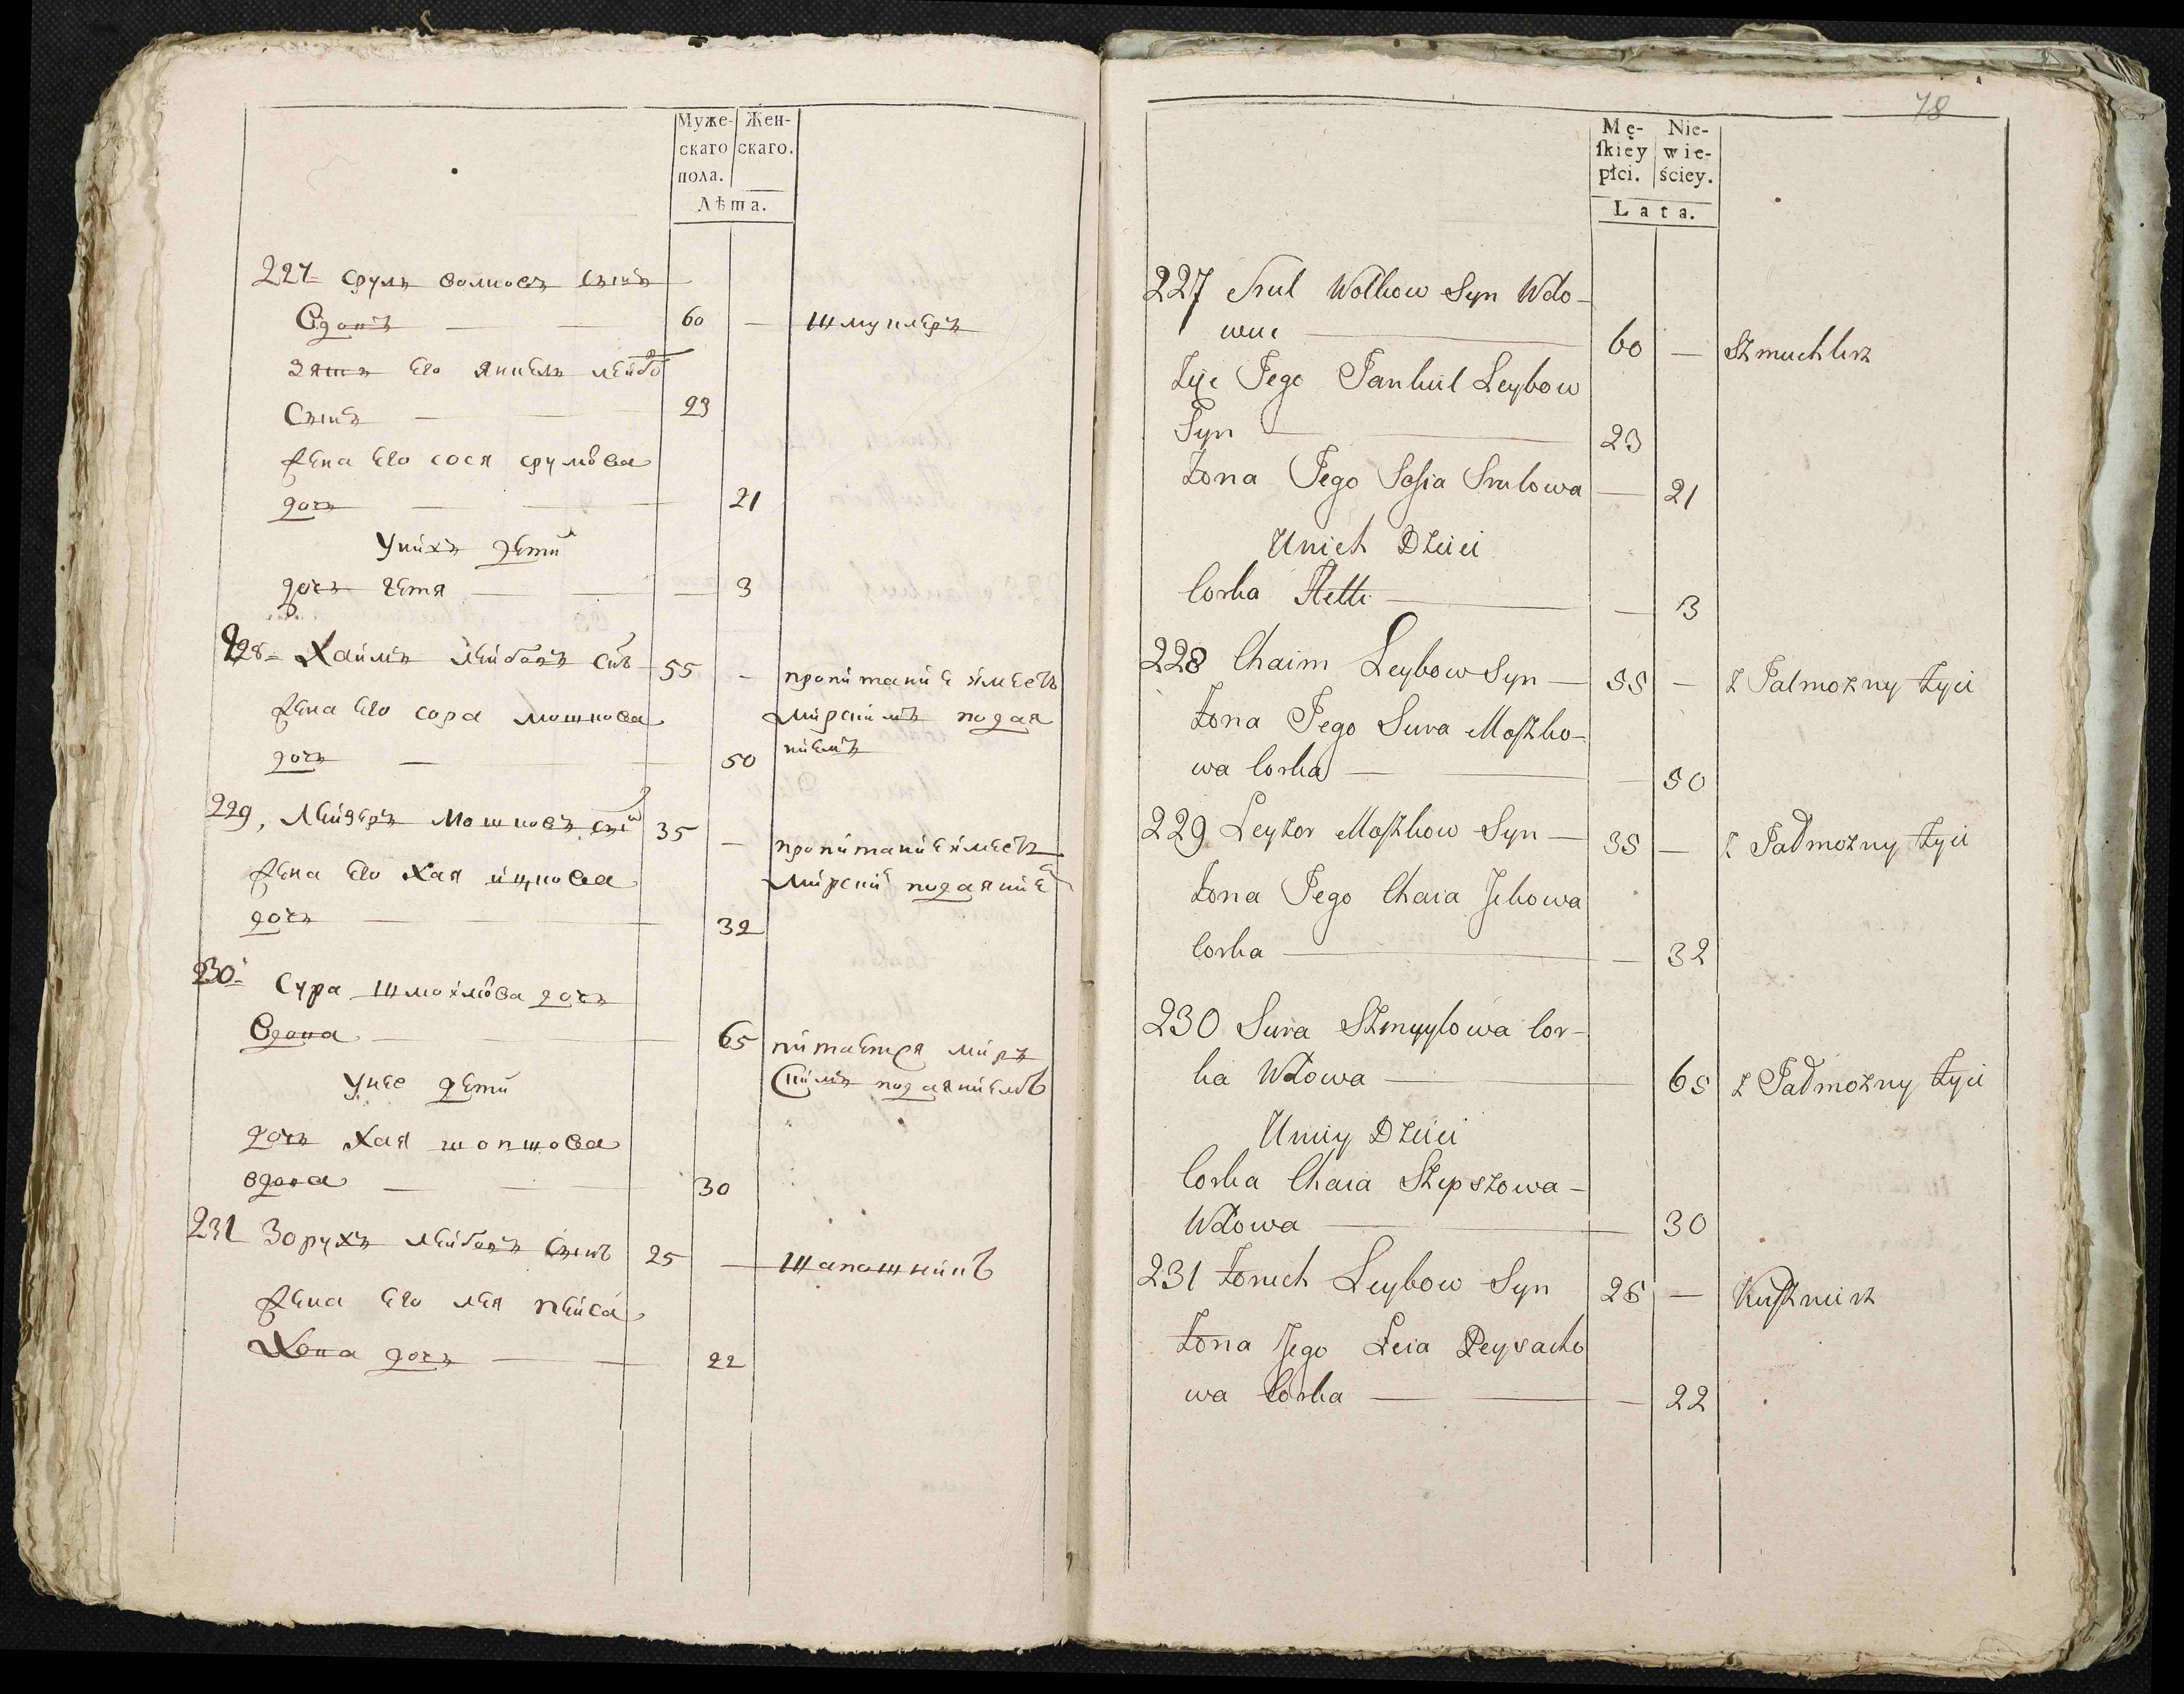 Муже-
скаго
пола.
Жен-
скаго.
Лѣта.
227 Сруль Волковъ Сынъ
Вдовъ — 60 — Шмуклеръ
Зять Его Янкель Лейбов
Сынъ — 23
Жена Его Сося Срулова
дочь — 21
У нихъ дети
дочь Гетя — 3
228 Хаимъ Лейбовъ Сынъ 55 — пропитание имеетъ
Жена Его Сора Мошкова мирскимъ подая
дочь — 50 ниемъ
229, Лейзеръ Мошковъ Сынъ 35 — пропитание имеетъ
Жена Его Хая Ицкова мирским подаяние
дочь — 32
230 Сура Шмойлова дочь
Вдова — 65 питается мир
Унее дети скимъ подаяниемъ
дочь Хая шопшова
вдова — 30
231 Зорухъ Лейбовъ Сынъ 25 — Шапошникъ
Жена Его Лея Пейса
Хова дочь — 22
78
Mę-
ſkiey
płci.
Nie-
wie-
ściey.
Lata.
227 Srul Wolkow Syn Wdo-
wiec — 60 — Szmuchlerz
Zięć Jego Jankiel Leybow
Syn — 23
Żona Jego Sosia Srulowa — 21
Unich Dzieci
Corka Hette — 3
228 Chaim Leybow Syn — 55 — z Jalmożny żyie
Żona Jego Sura Moszko-
wa Corka — 50
229 Leyzor Moszkow Syn — 35 — z Jadmożny żyie
Żona Jego Chaia Ickowa
Corka — 32
230 Sura Szmuylowa Cor-
ka Wdowa — 65 z Jadmożny żyie
Uniey Dzieci
Corka Chaia Szepszowa-
Wdowa — 30
231 Żoruch Leybow Syn 25 — Kuſznierz
Żona Jego Leia Peysacho
wa Corka — 22